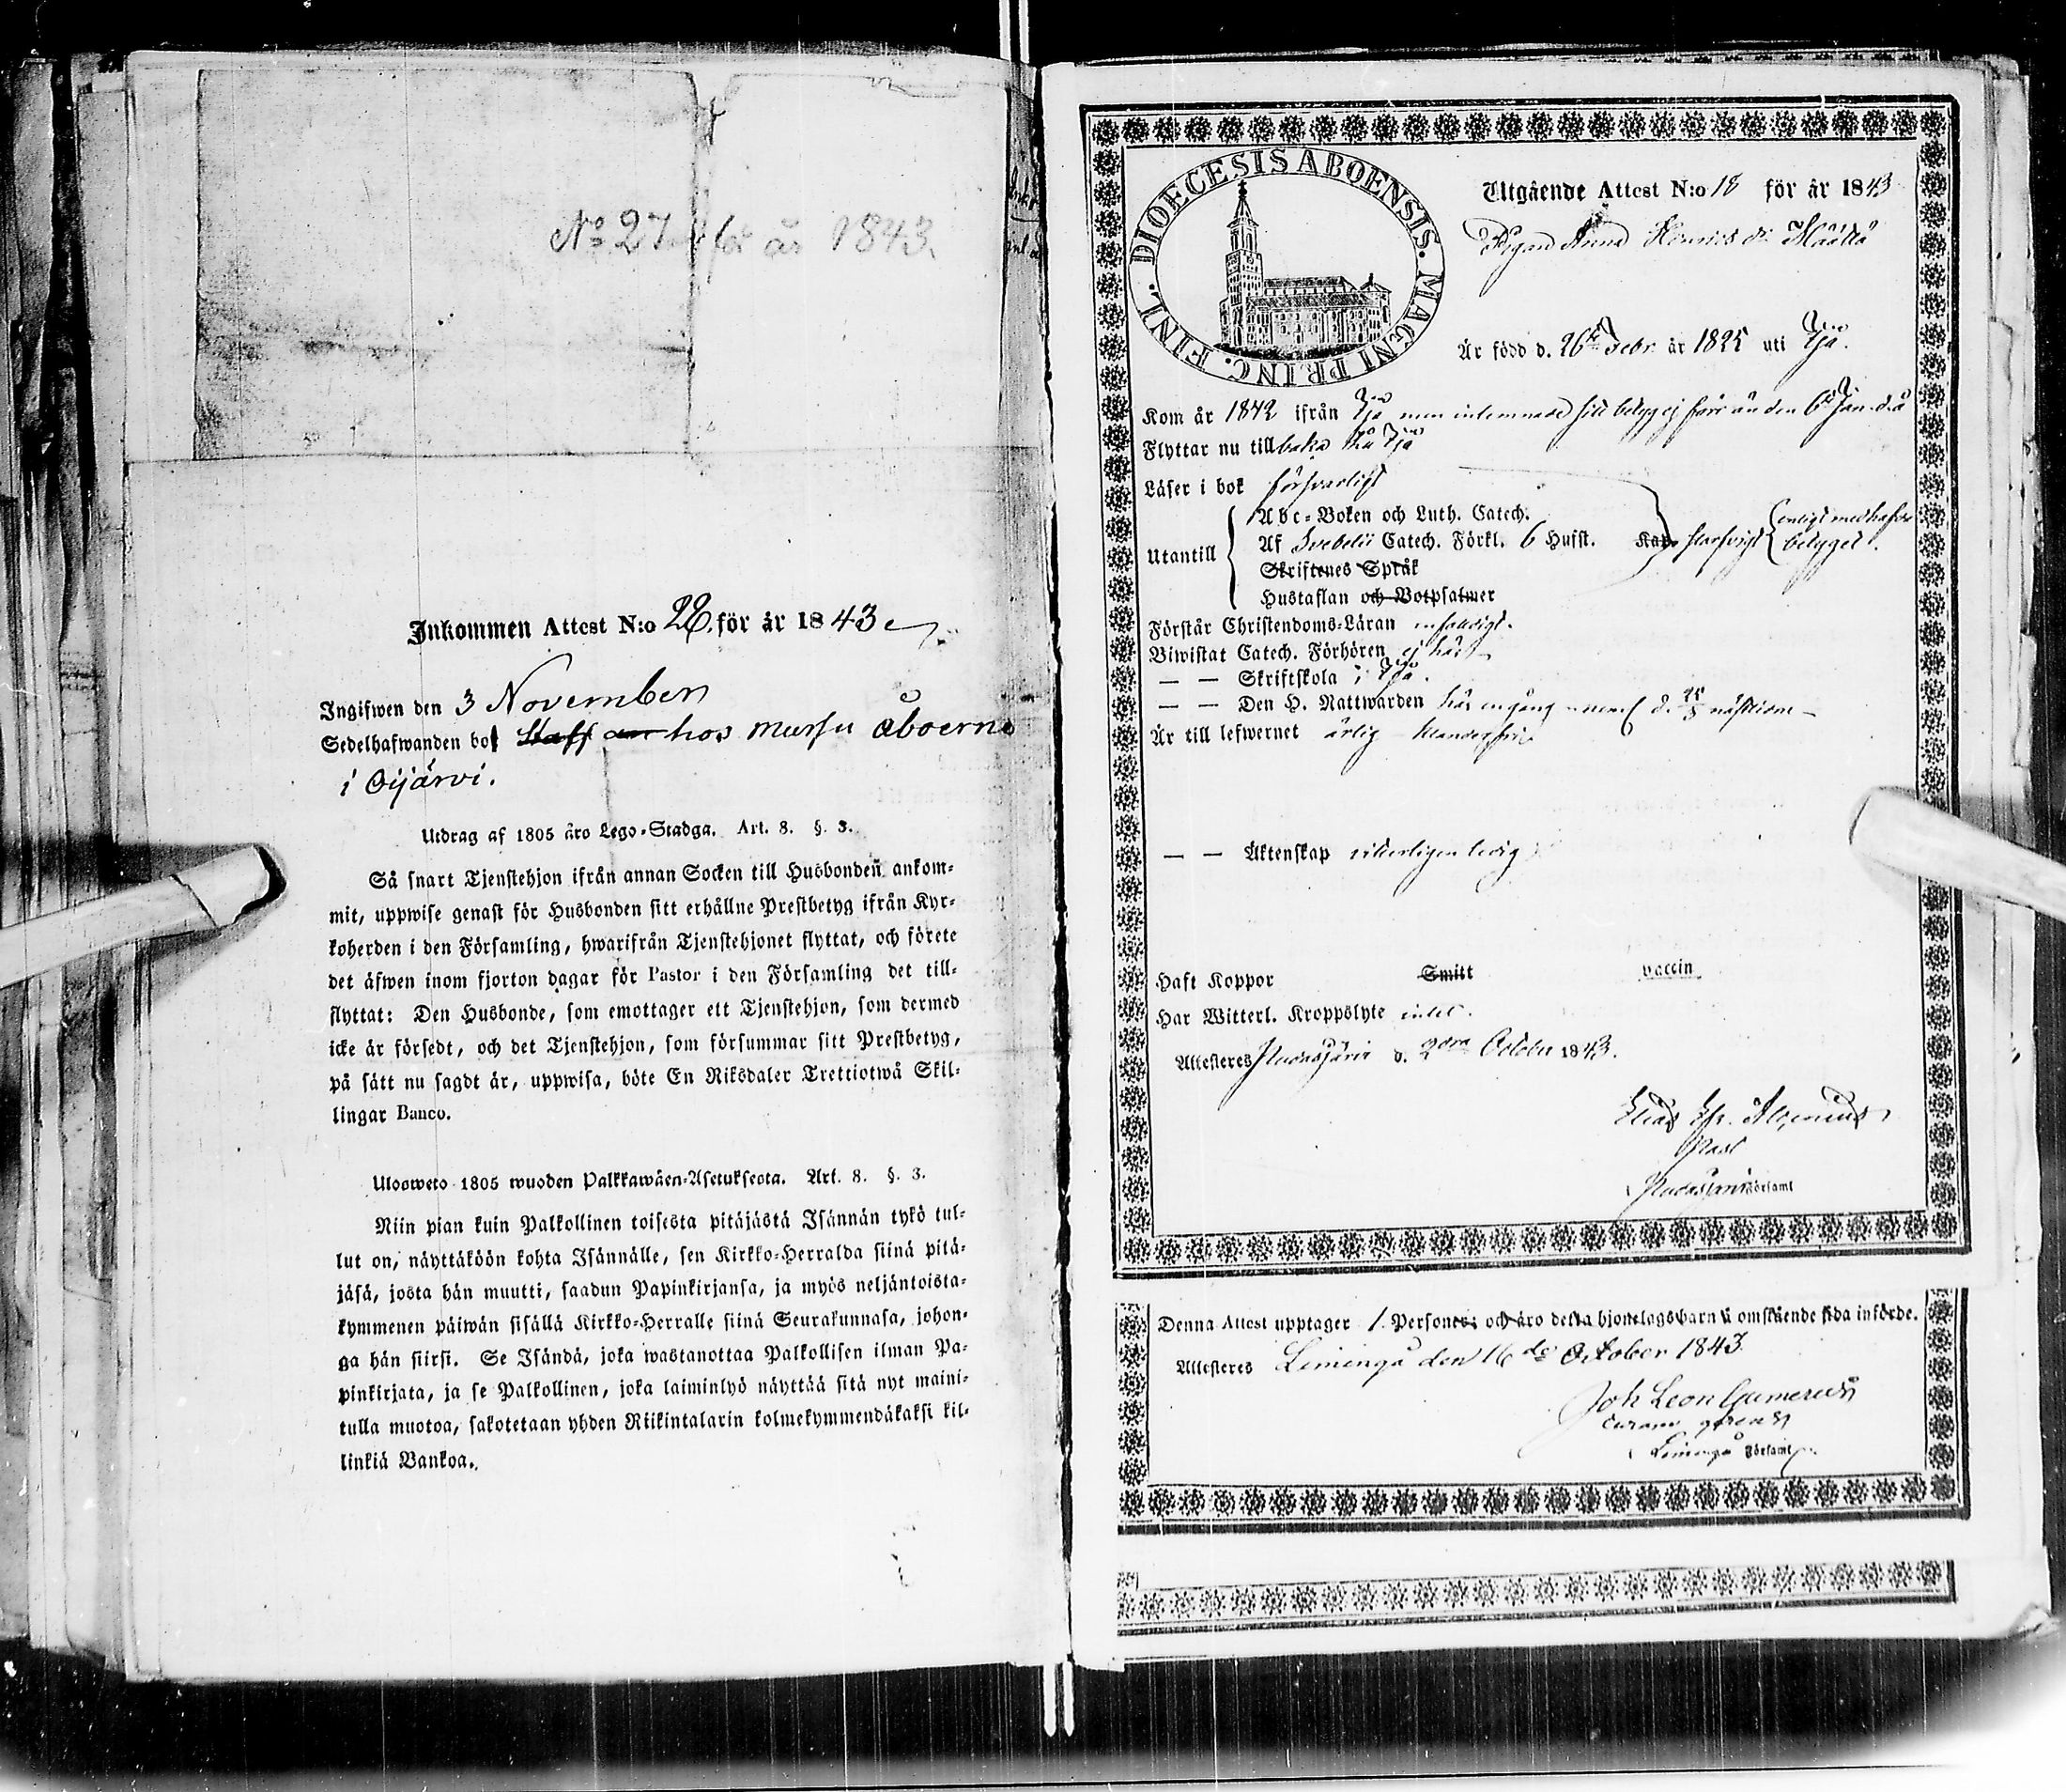 No 27 för år 1843.
Inkommen Attest N:o 28. för år 1843
Ingifwen den 3 November
Sedelhafwanden bor hos Mursu åboerne
i Oijärvi.
Utdrag af 1805 års Lego-Stadga. Art. 8. §. 3.
Så snart Tjenstehjon ifrån annan Socken till Husbonden ankom-
mit, uppwise genast för Husbonden sitt erhållne Prestbetyg ifrån Kyr-
koherden i den Församling, hwarifrån Tjenstehjonet flyttat, och förete
det äfwen inom fjorton dagar för Pastor i den Församling det till-
flyttat: Den Husbonde, som emottager ett Tjenstehjon, som dermed
icke är försedt, och det Tjenstehjon, som försummar sitt Prestbetyg,
på sätt nu sagdt är, uppwisa, böte En Riksdaler Trettiotwå Skil-
lingar Banco.
Ulosweto 1805 wuoden Palkkawäen-Asetuksesta. Art. 8. §. 3.
Niin pian kuin Palkollinen toisesta pitäjästä Isännän tykö tul-
lut on, näyttäköön kohta Isännälle, sen Kirkko-Herralda siinä pitä-
jäsä, josta hän muutti, saadun Papinkirjansa, ja myös neljäntoista-
kymmenen päiwän sisällä Kirkko-Herralle siinä Seurakunnasa, johon-
ga hän siirsi. Se Isändä, joka wastanottaa Palkollisen ilman Pa-
pinkirjata, ja se Palkollinen, joka laiminlyö näyttää sitä nyt maini-
tulla muotoa, sakotetaan yhden Riikintalarin kolmekymmendäkaksi kil-
linkiä Bankoa.
DIOECESIS ABOENSIS. MAGNI PRINC. FINL.
Utgående Attest N:o 18 för år 1843
Pigan Anna Henrics dr Määttä
Är född d. 26 Febr. år 1825 uti Ijo.
Kom år 1842 ifrån Ijo men inlemnade sitt betyg ej förr än den 6 Jan. d. å
Flyttar nu tillbaka till Ijo
Läser i bok försvarligt
Utantill
Abc-Boken och Luth. Catech.
Af Svebelii Catech. Förkl. 6 Hufst. enligt medhafde
Skriftenes Språk betyget.
Hustaflan och Botpsalmer
Förstår Christendoms-Läran enfaldigt.
Biwistat Catech. Förhören ej här
— — Skriftskola i Ijo.
— — Den H. Nattwarden här en gång
Är till lefwernet ärlig klanderfri
— — Äktenskap veterligen ledig
Haft Koppor Smitt vaccin
Har Witterl. Kroppslyte intet.
Attesteres Pudasjärvi d. 2dra October 1843.
Elias
Past
Pudasjärvi Församl
Denna Attest upptager 1 Personer; och äro detta hjonelags barn å omstående sida införde.
Attesteres Limingå den 16de October 1843.
Joh Leon Gumerus
curam gerens
Limingå Församl